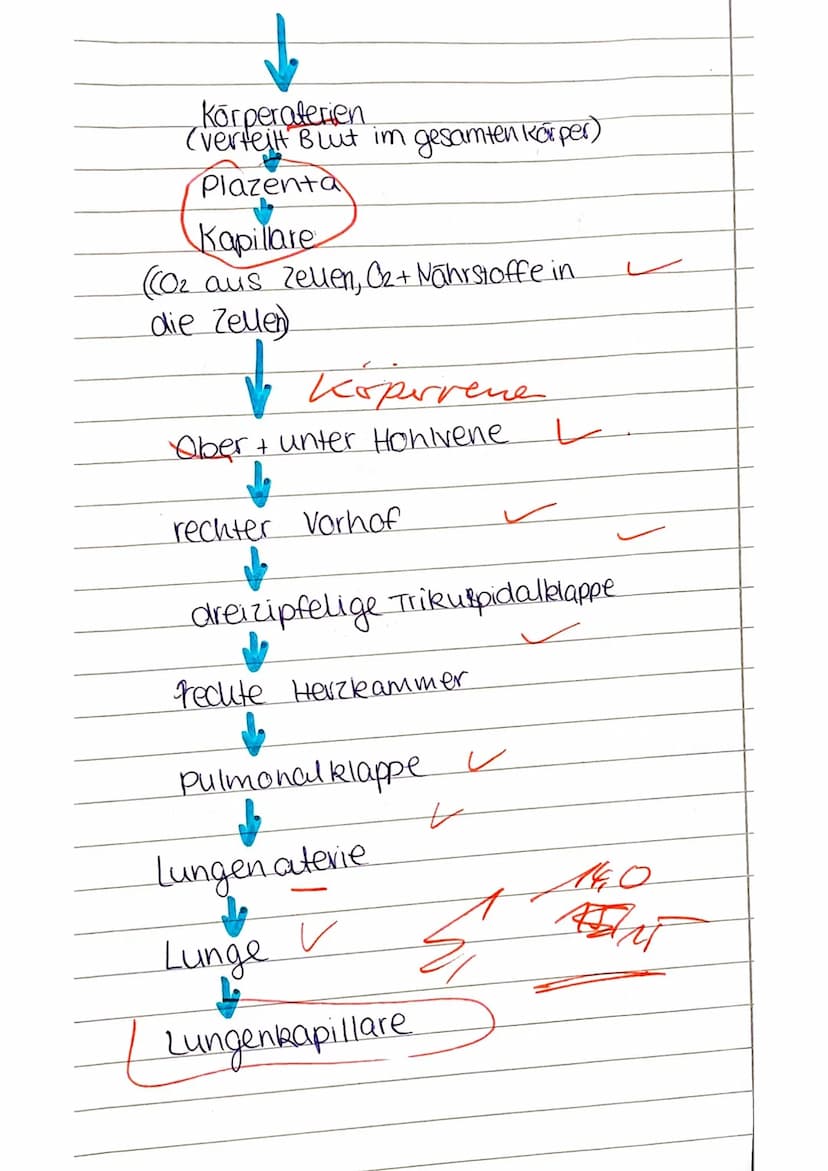 Körperaterien
(verteilt Blut im gesamten Körper)
Plazenta
Kapillare
(CO2 aus Zellen, O2 + Nährstoffe in
die Zellen)
Körpervene
Ober + unter Hohlvene
rechter Vorhof
dreizipfelige Trikuspidalklappe
rechte Herzkammer
Pulmonalklappe
Lungenaterie
14,0
Lunge
Lungenkapillare